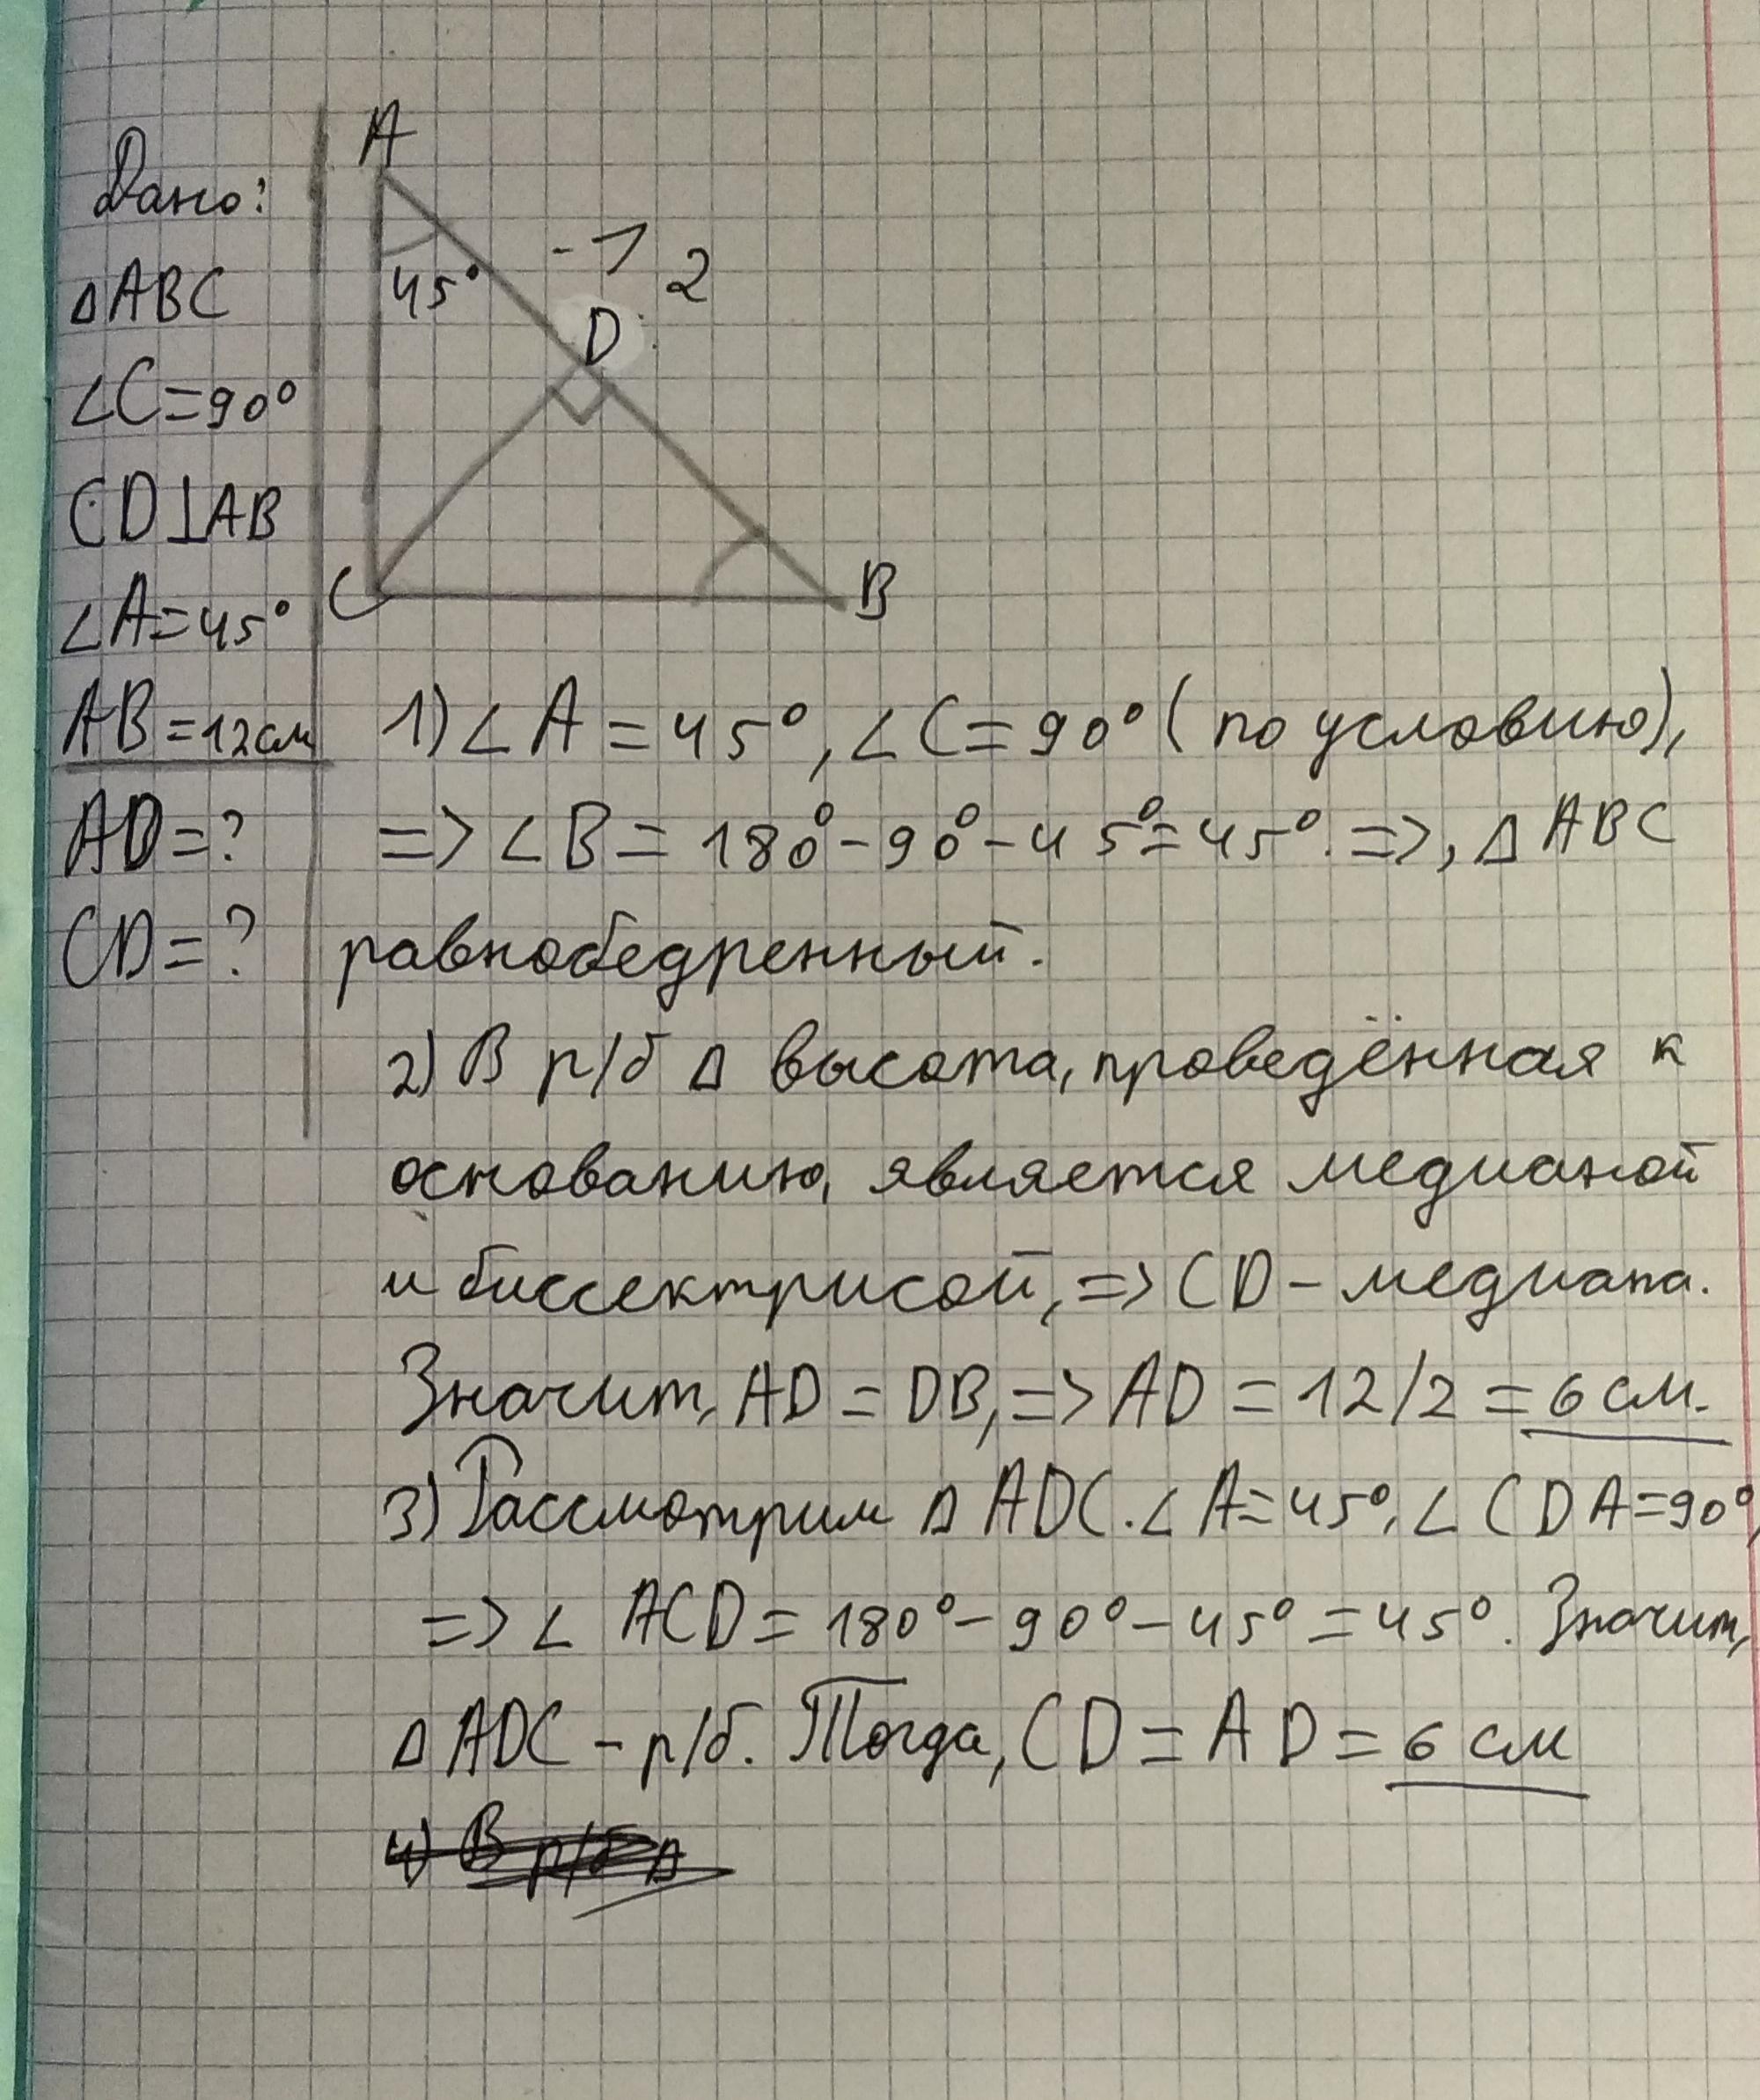 Дано:
△ABC
∠C=90°
CD⊥AB
∠A=45°
AB=12см
AD=?
CD=?
A
45°
12
D
C
B
1) ∠A=45°, ∠C=90° (по условию),
=> ∠B=180°-90°-45°=45°. =>, △ABC
равнобедренный.
2) В р/б △ высота, проведённая к
основанию, является медианой
и биссектрисой, => CD - медиана.
Значит, AD = DB, => AD = 12/2 = 6 см.
3) Рассмотрим △ADC. ∠A=45°, ∠CDA=90°,
=> ∠ACD=180°-90°-45°=45°. Значит,
△ADC - р/б. Тогда, CD=AD=6 см
4) В р/б △